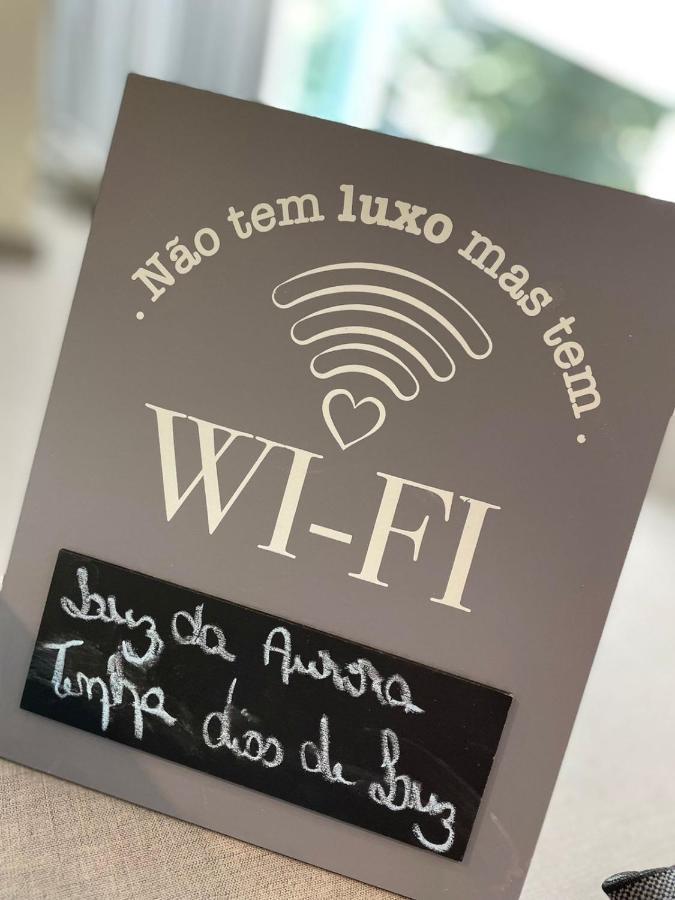 . Não tem luxo mas tem .
WI-FI
Luz da Aurora
Tenha dias de Luz